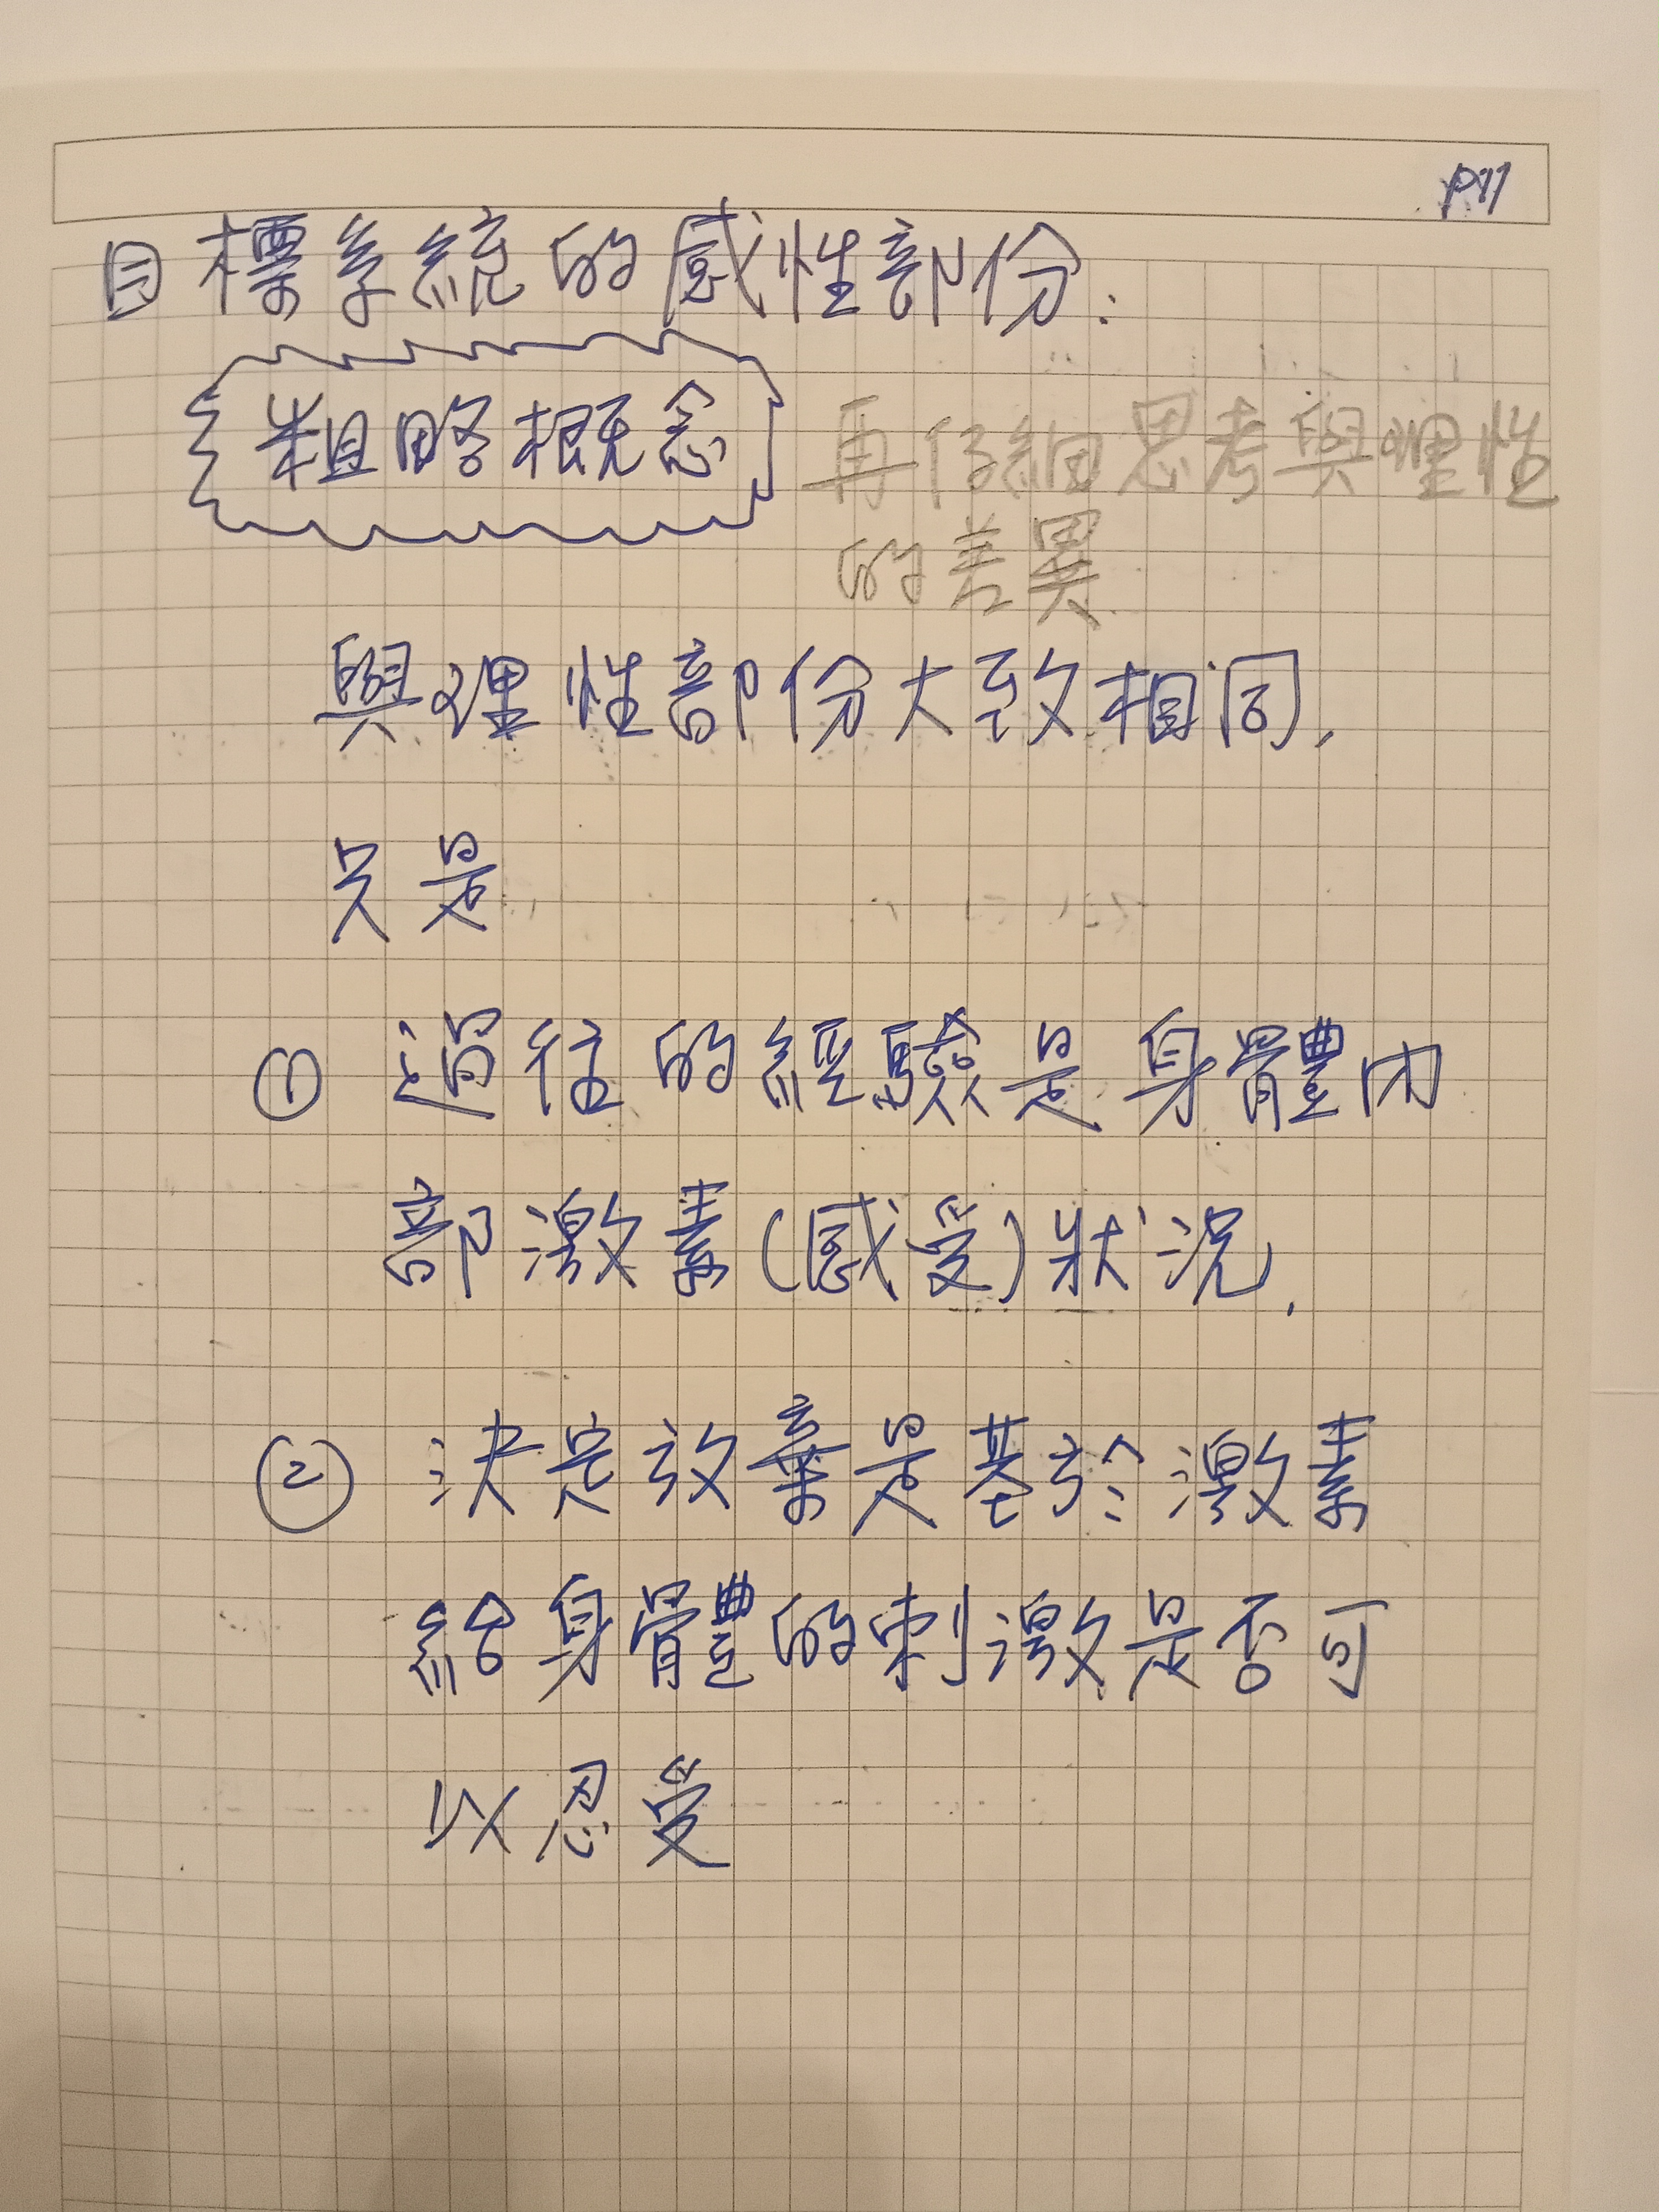 P11
目標系統的感性部份:
粗略概念 再仔細思考與理性
的差異
與理性部份大致相同,
只是
① 過往的經驗是身體內
部激素(感受)狀況,
② 決定放棄是基於激素
給身體的刺激是否可
以忍受